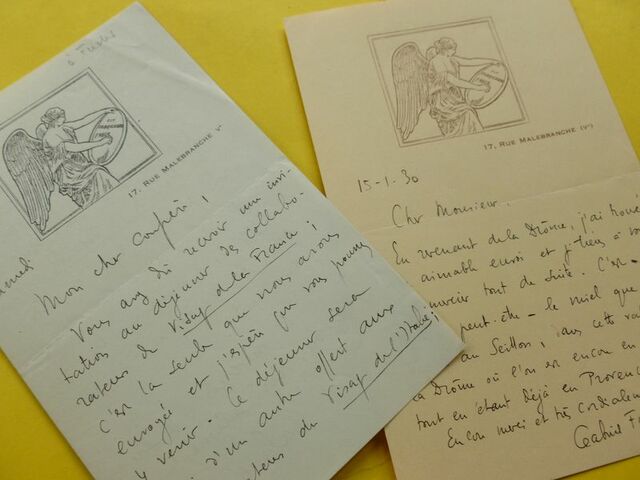 17, RUE MALEBRANCHE Vᵉ
Mon cher confrère !
Vous avez dû recevoir une invi-
tation au déjeuner des collabo-
rateurs de Visage de la France ;
c'est la seule que nous avons
envoyée et j'espère que vous pourrez
y venir. Le déjeuner sera
d'un autre offert aux
du Visage de l'Italie ;
17, RUE MALEBRANCHE (Vᵉ)
15-1-30
Cher Monsieur.
En revenant de la Drôme, j'ai trouvé
aimable envoi et je tiens à vous
tout de suite. C'est -
peut-être - le miel que
au Seillon, dans cette
la Drôme où l'on est encore en
tout en étant déjà en Provence
Encore merci et très cordialement
Gabriel